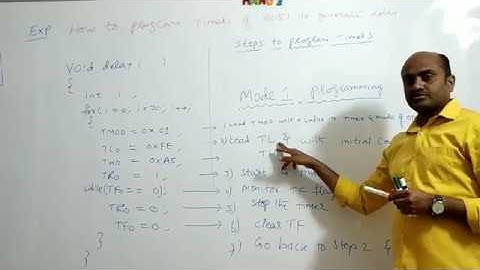 Exp How to program Timers of 8051 to generate delay
steps to program Timers
void delay ( )
{
int i,
for(i=0, i<20, i++)
{
TMOD = 0x01,
TL0 = 0xFE,
TH0 = 0xA5,
TR0 = 1,
while(TF0 == 0);
TR0 = 0,
TF0 = 0,
}
}
Mode 1 programming
1 Load TMOD with value Timer & mode of
2) Load TL & with initial
3) start timer
4) monitor TF flag
5) stop the timer
6) clear TF
7) Go back to step 2 &